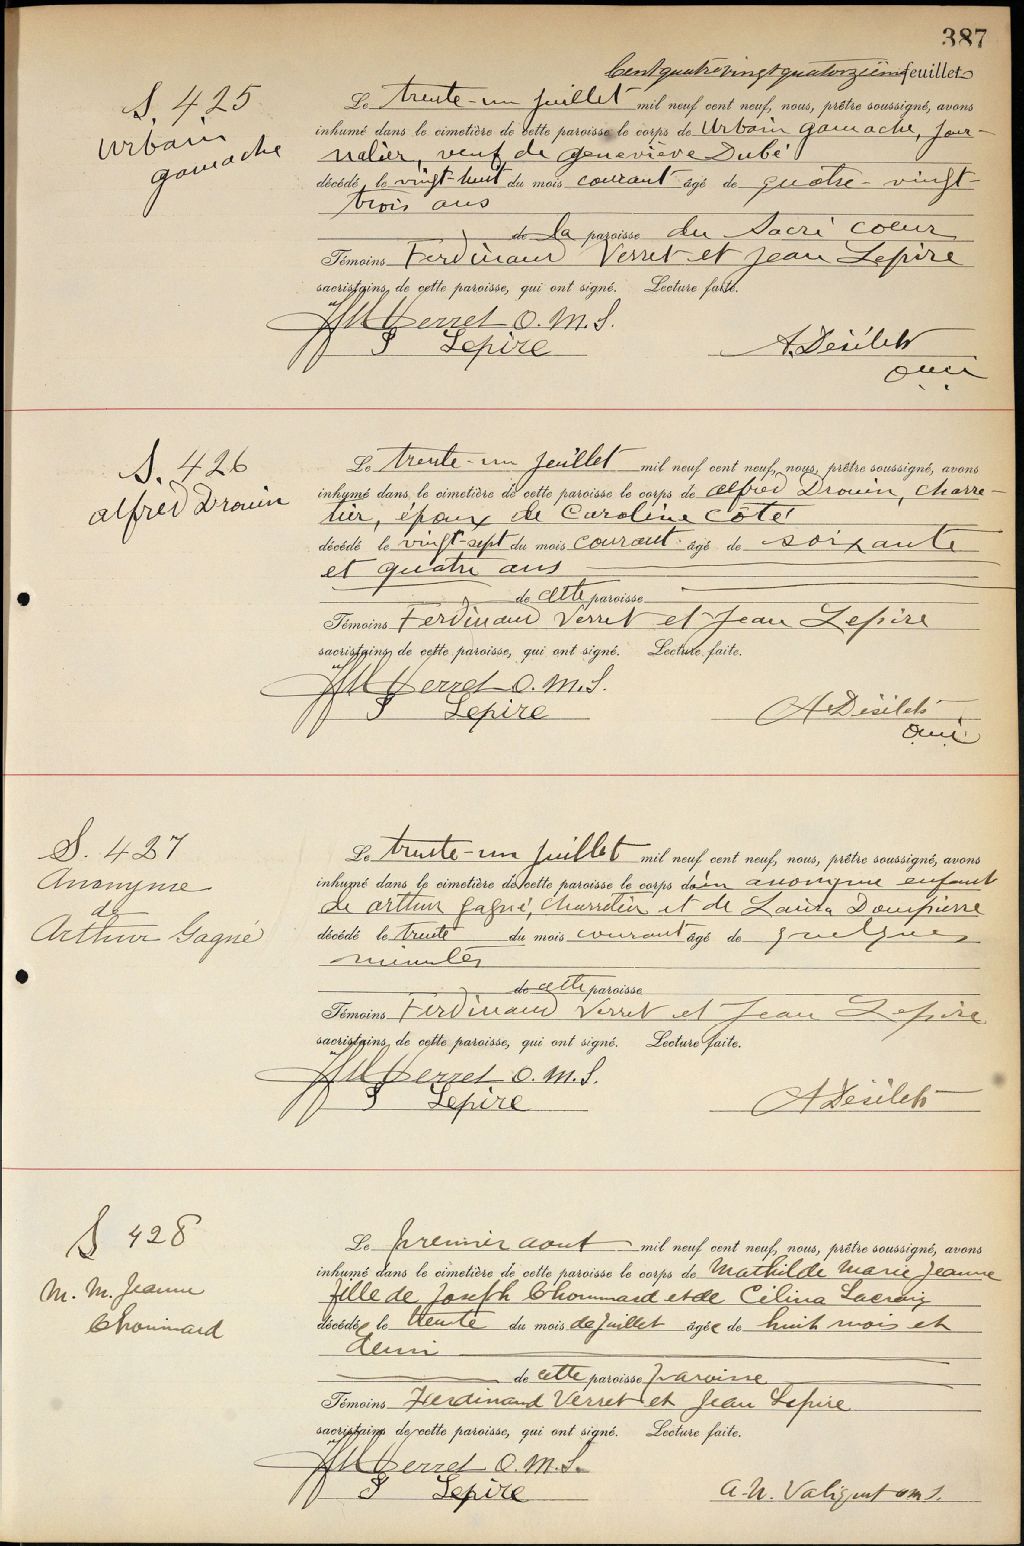 387
Cent quatre vingt quatorzième feuillet
S. 425
Urbain
gamache
Le trente-un juillet mil neuf cent neuf, nous, prêtre soussigné, avons
inhumé dans le cimetière de cette paroisse le corps de Urbain gamache, jour-
nalier, veuf de geneviève Dubé
décédé le vingt-huit du mois courant âgé de quatre-vingt-
trois ans
de la paroisse du Sacré coeur
Témoins Ferdinand Verret et Jean Lepire
sacristains de cette paroisse, qui ont signé. Lecture faite.
Verret O. M. S.
J Lepire
A. Désilets
omi
S. 426
alfred Drouin
Le trente-un juillet mil neuf cent neuf, nous, prêtre soussigné, avons
inhumé dans le cimetière de cette paroisse le corps de alfred Drouin, charre-
tier, époux de Caroline Côté
décédé le vingt-sept du mois courant âgé de soixante
et quatre ans
de cette paroisse
Témoins Ferdinand Verret et Jean Lepire
sacristains de cette paroisse, qui ont signé. Lecture faite.
Verret O. M. S.
J Lepire
A Désilets
omi
S. 427
Anonyme
de
Arthur Gagné
Le trente-un juillet mil neuf cent neuf, nous, prêtre soussigné, avons
inhumé dans le cimetière de cette paroisse le corps d'un anonyme enfant
de arthur gagné, charretier et de Laura Dompierre
décédé le trente du mois courant âgé de quelques
minutes
de cette paroisse
Témoins Ferdinand Verret et Jean Lepire
sacristains de cette paroisse, qui ont signé. Lecture faite.
Verret O. M. S.
J Lepire
A Désilets
S 428
M. M. Jeanne
Chouinard
Le premier aout mil neuf cent neuf, nous, prêtre soussigné, avons
inhumé dans le cimetière de cette paroisse le corps de Mathilde Marie Jeanne
fille de Joseph Chouinard et de Célina Lacroix
décédée le trente du mois de juillet âgée de huit mois et
demi
de cette paroisse paroisse
Témoins Ferdinand Verret et Jean Lepire
sacristains de cette paroisse, qui ont signé. Lecture faite.
Verret O. M. S.
J Lepire
A. N. Valiquet o m i.